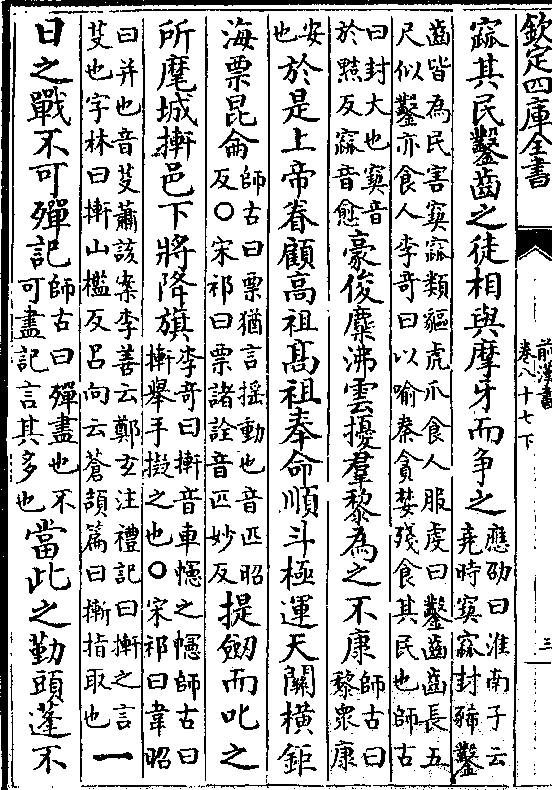 欽定四庫全書
前漢書
卷八十七下
三
窳其民鑿齒之徒相與摩牙而争之應劭曰淮南子云堯時窫窳封豨鑿
齒皆為民害窫窳類貙虎爪食人服虔曰鑿齒齒長五尺似鑿亦食人李竒曰以喻秦貪婪殘食其民也師古
曰封大也窫音於黠反窳音愈豪俊麋沸雲擾羣黎為之不康師古曰黎衆康
安也於是上帝眷顧高祖高祖奉命順斗極運天關横鉅
海票昆侖師古曰票猶言摇動也音匹昭反○宋祁曰票諸詮音匹妙反提劒而叱之
所麾城摲邑下將降旗李竒曰摲音車幰之幰師古曰摲舉手擬之也○宋祁曰韋昭
曰并也音芟蕭該案李善云鄭玄注禮記曰摲之言芟也字林曰摲山檻反吕向云蒼頡篇曰摲指取也一
日之戰不可殫記師古曰殫盡也不可盡記言其多也當此之勤頭蓬不